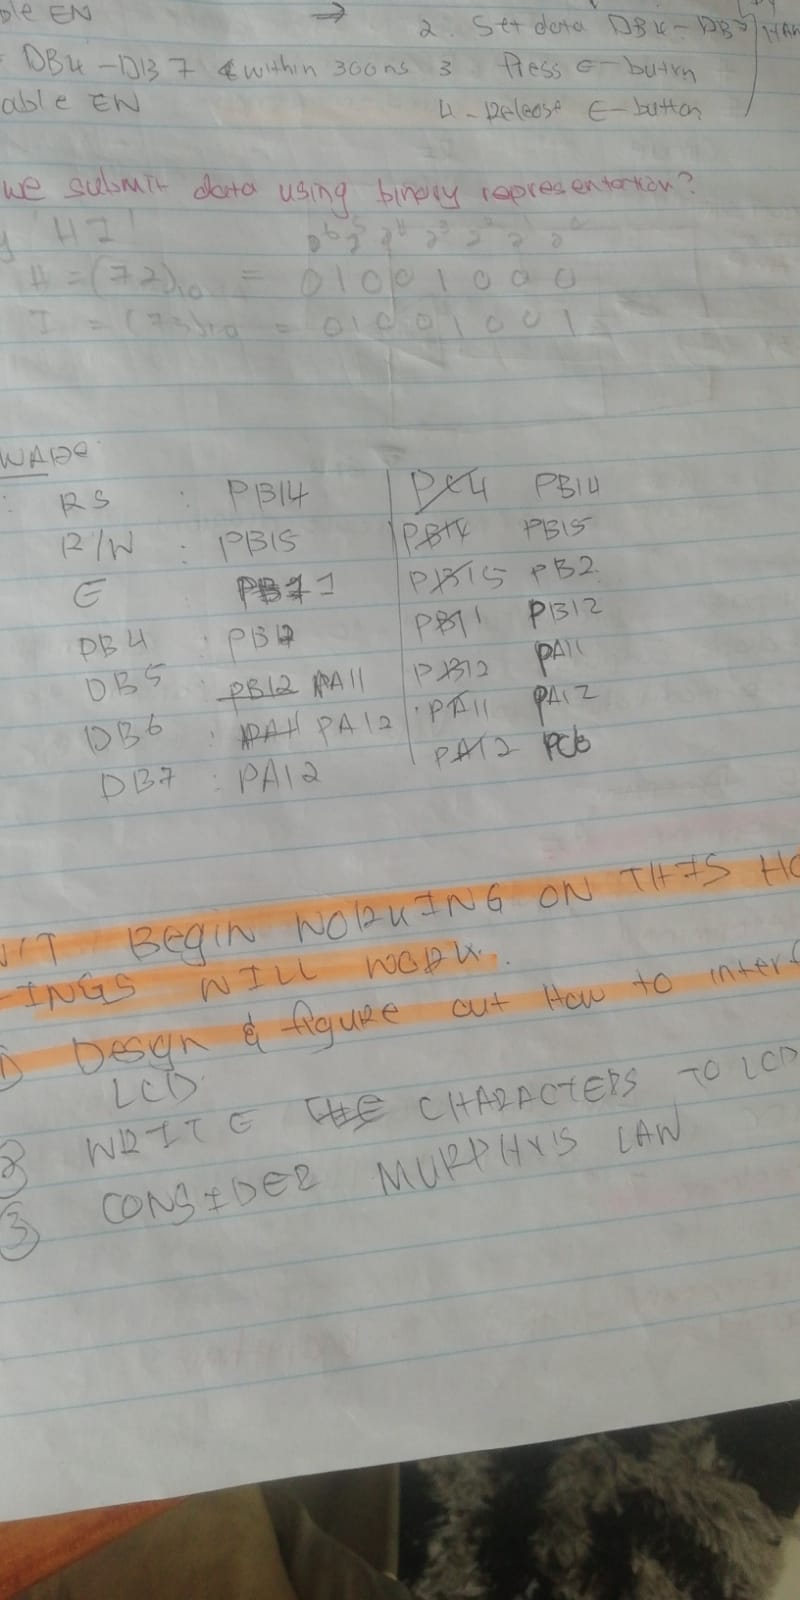 ble EN ⇒ 2. Set data DB4 - DB7
DB4 - DB7 & within 300ns 3 Press E- button
able EN 4 - Release E- button
we submit data using binary representation?
'HI'
H = (72)10 = 01001000
I = (73)10 = 01001001
WARE
: RS : PB14 PC4 PB14
R/W : PB15 PB14 PB15
E PB1 1 PB15 PB2
DB4 : PB12 PB11 PB12
DB5 : PB12 PA11 PB12 PA11
DB6 : PA11 PA12 PA11 PA12
DB7 : PA12 PA12 PC6
N'T BEGIN WORKING ON THIS HO
INGS WILL WORK.
① Design & figure out How to interf
LCD
② WRITE THE CHARACTERS TO LCD
③ CONSIDER MURPHY'S LAW